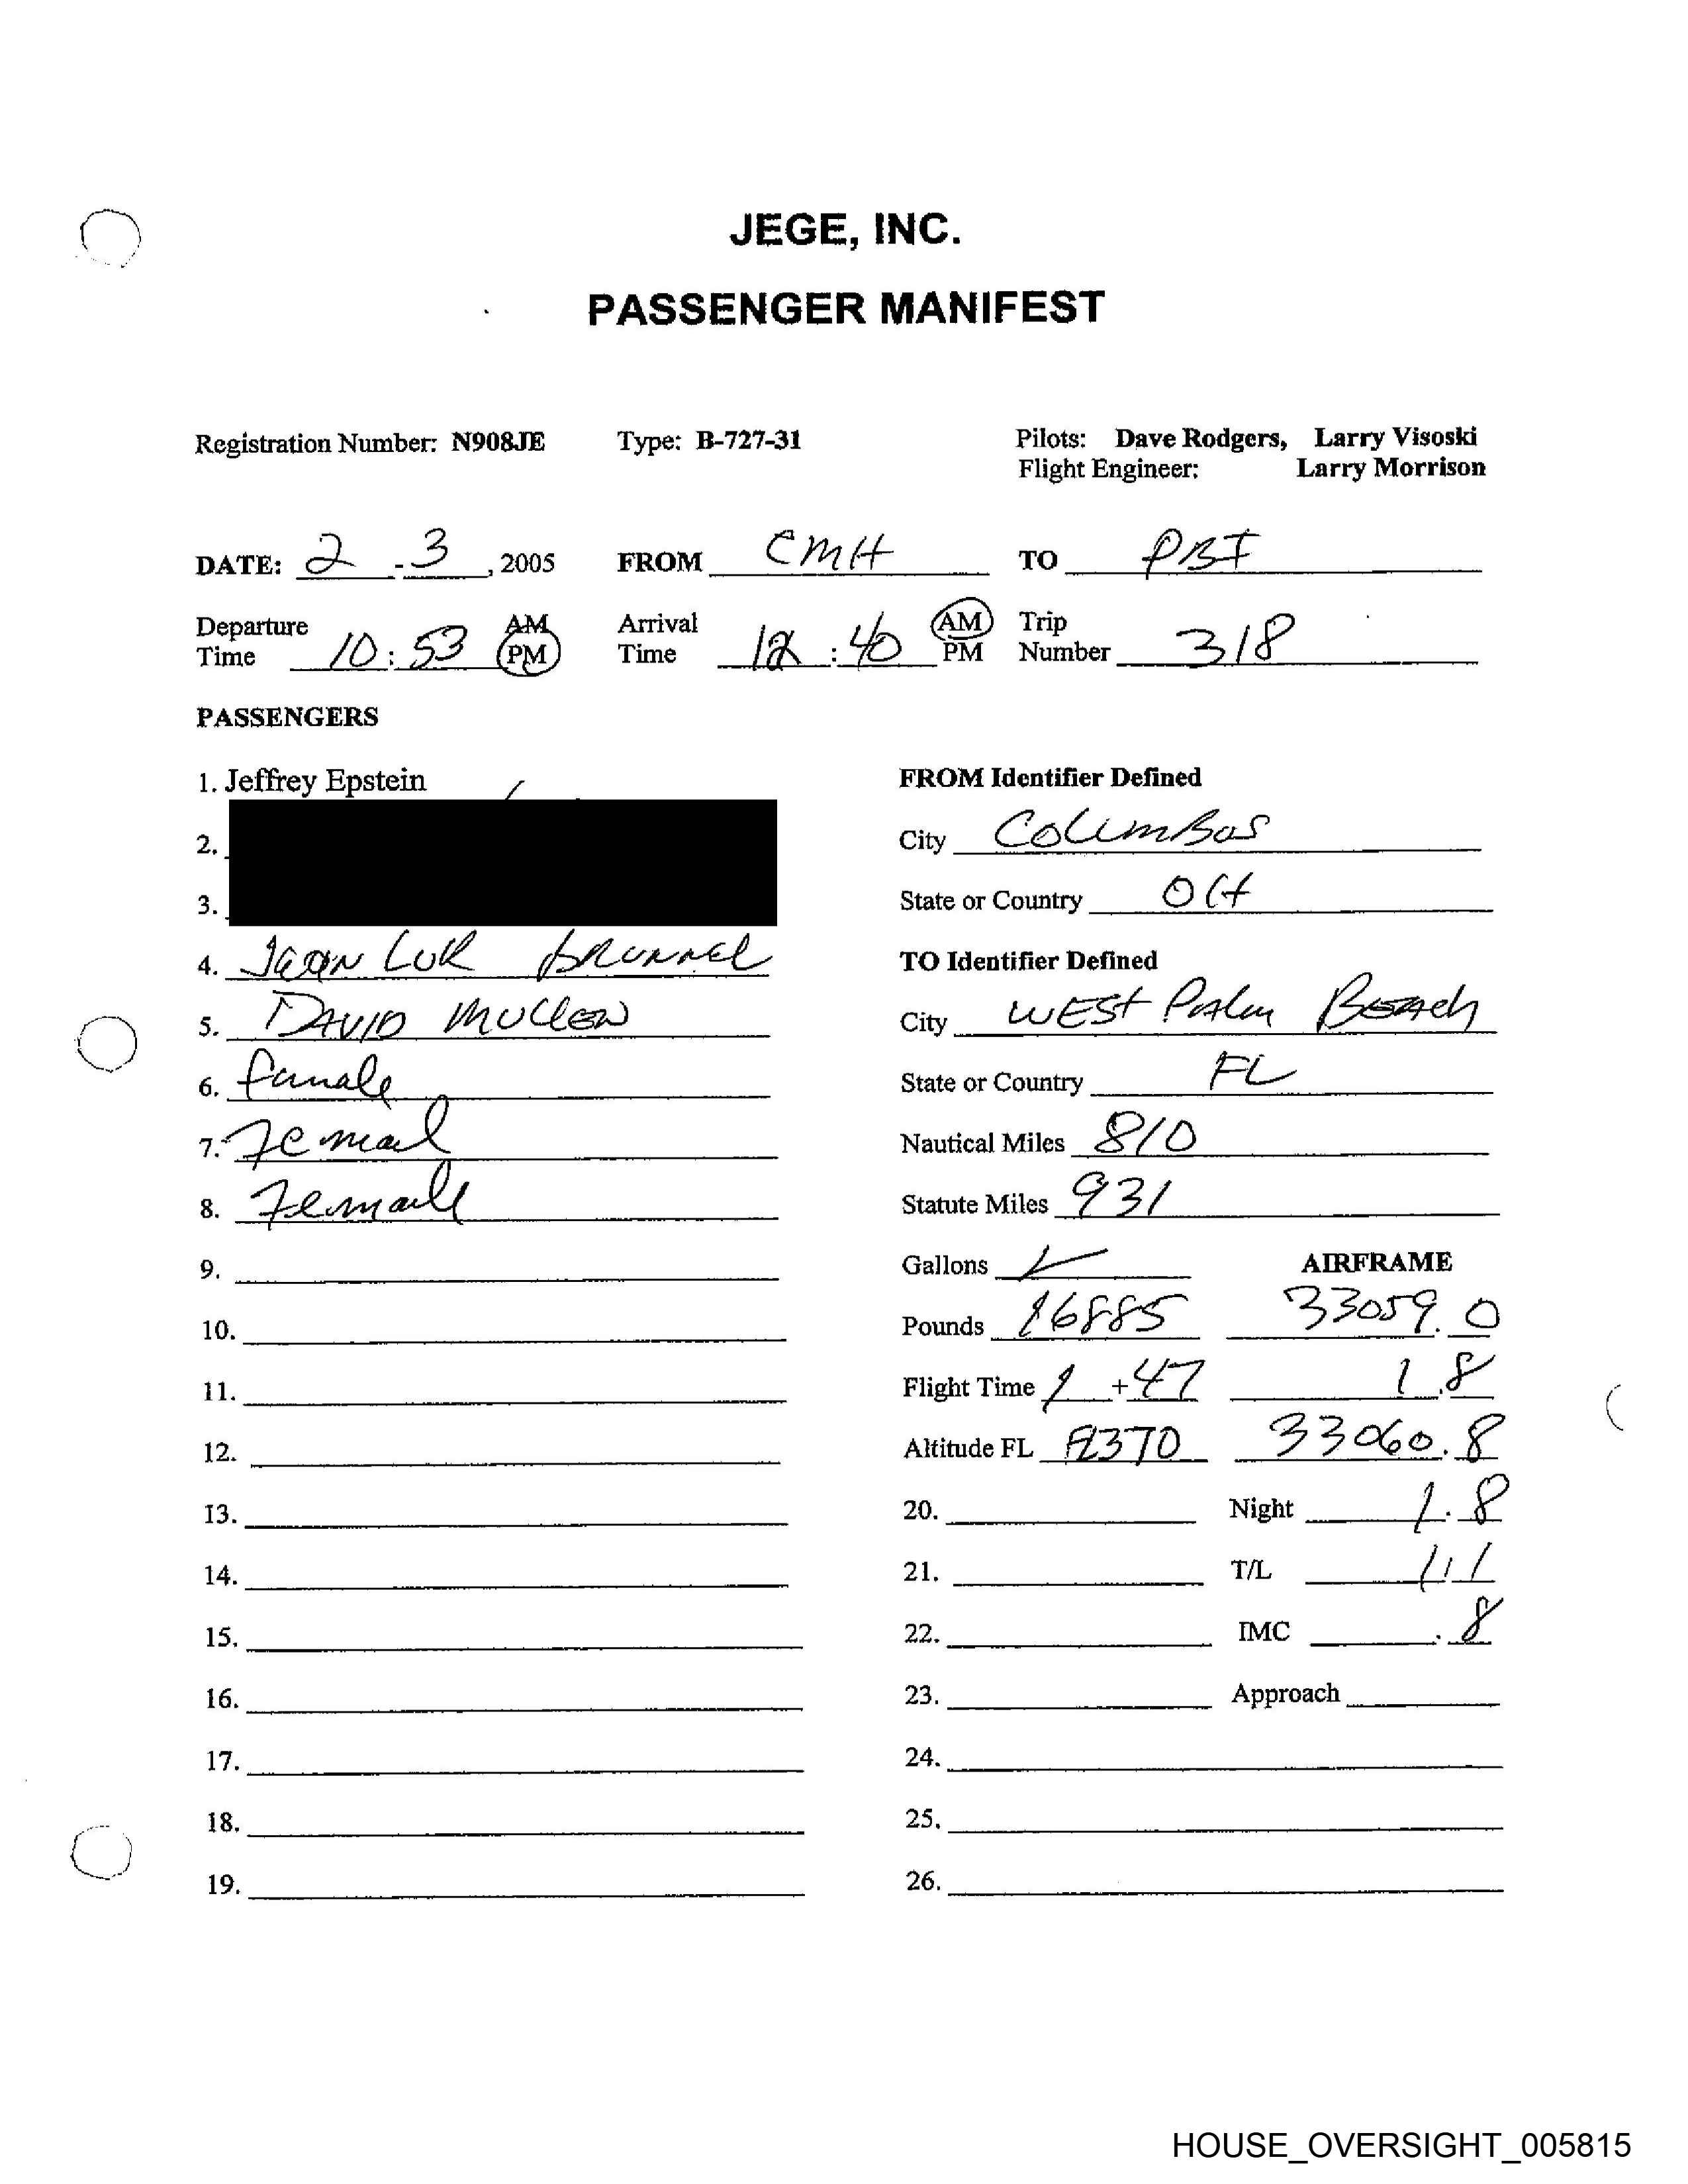 JEGE, INC.
PASSENGER MANIFEST
Registration Number: N908JE Type: B-727-31 Pilots: Dave Rodgers, Larry Visoski
Flight Engineer: Larry Morrison
DATE: 2 - 3, 2005 FROM CMH TO PBI
Departure Time 10:53 AM PM Arrival Time 12:40 AM PM Trip Number 318
PASSENGERS
1. Jeffrey Epstein
2.
3.
4. Jean Luk Brunnel
5. David Mullen
6. Female
7. Femal
8. Femall
9.
10.
11.
12.
13.
14.
15.
16.
17.
18.
19.
FROM Identifier Defined
City Columbus
State or Country OH
TO Identifier Defined
City West Palm Beach
State or Country FL
Nautical Miles 810
Statute Miles 931
Gallons AIRFRAME
Pounds 16885 33059.0
Flight Time 1+47 1.8
Altitude FL FL370 33060.8
20. Night 1.8
21. T/L 1/1
22. IMC .8
23. Approach
24.
25.
26.
HOUSE_OVERSIGHT_005815